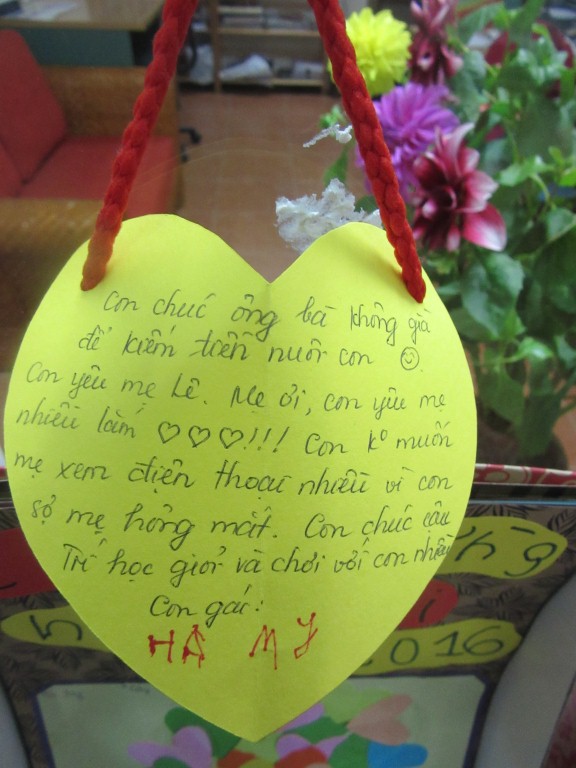 Con chúc ông bà không già
để kiếm tiền nuôi con ☺.
Con yêu mẹ Lê. Mẹ ơi, con yêu mẹ
nhiều lắm ♡♡♡!!! Con k° muốn
mẹ xem điện thoại nhiều vì con
sợ mẹ hỏng mắt. Con chúc cậu
Trí học giỏi và chơi với con nhiều
Con gái:
HÀ MY
2016